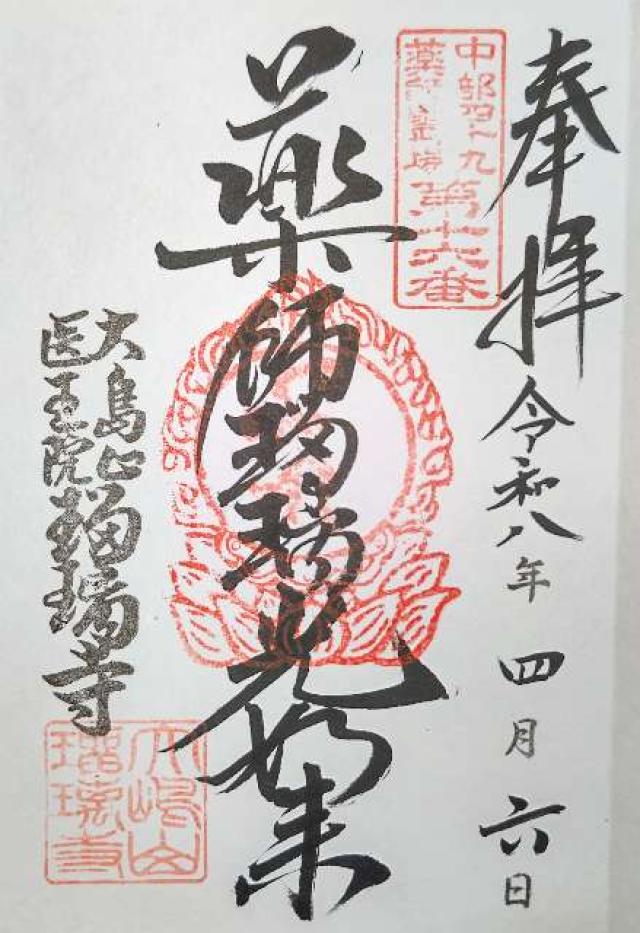 奉拝
令和八年四月六日
中部四十九
薬師霊場
第十六番
薬師瑠璃光如来
大島山
医王院
瑠璃寺
大嶋山
瑠璃寺